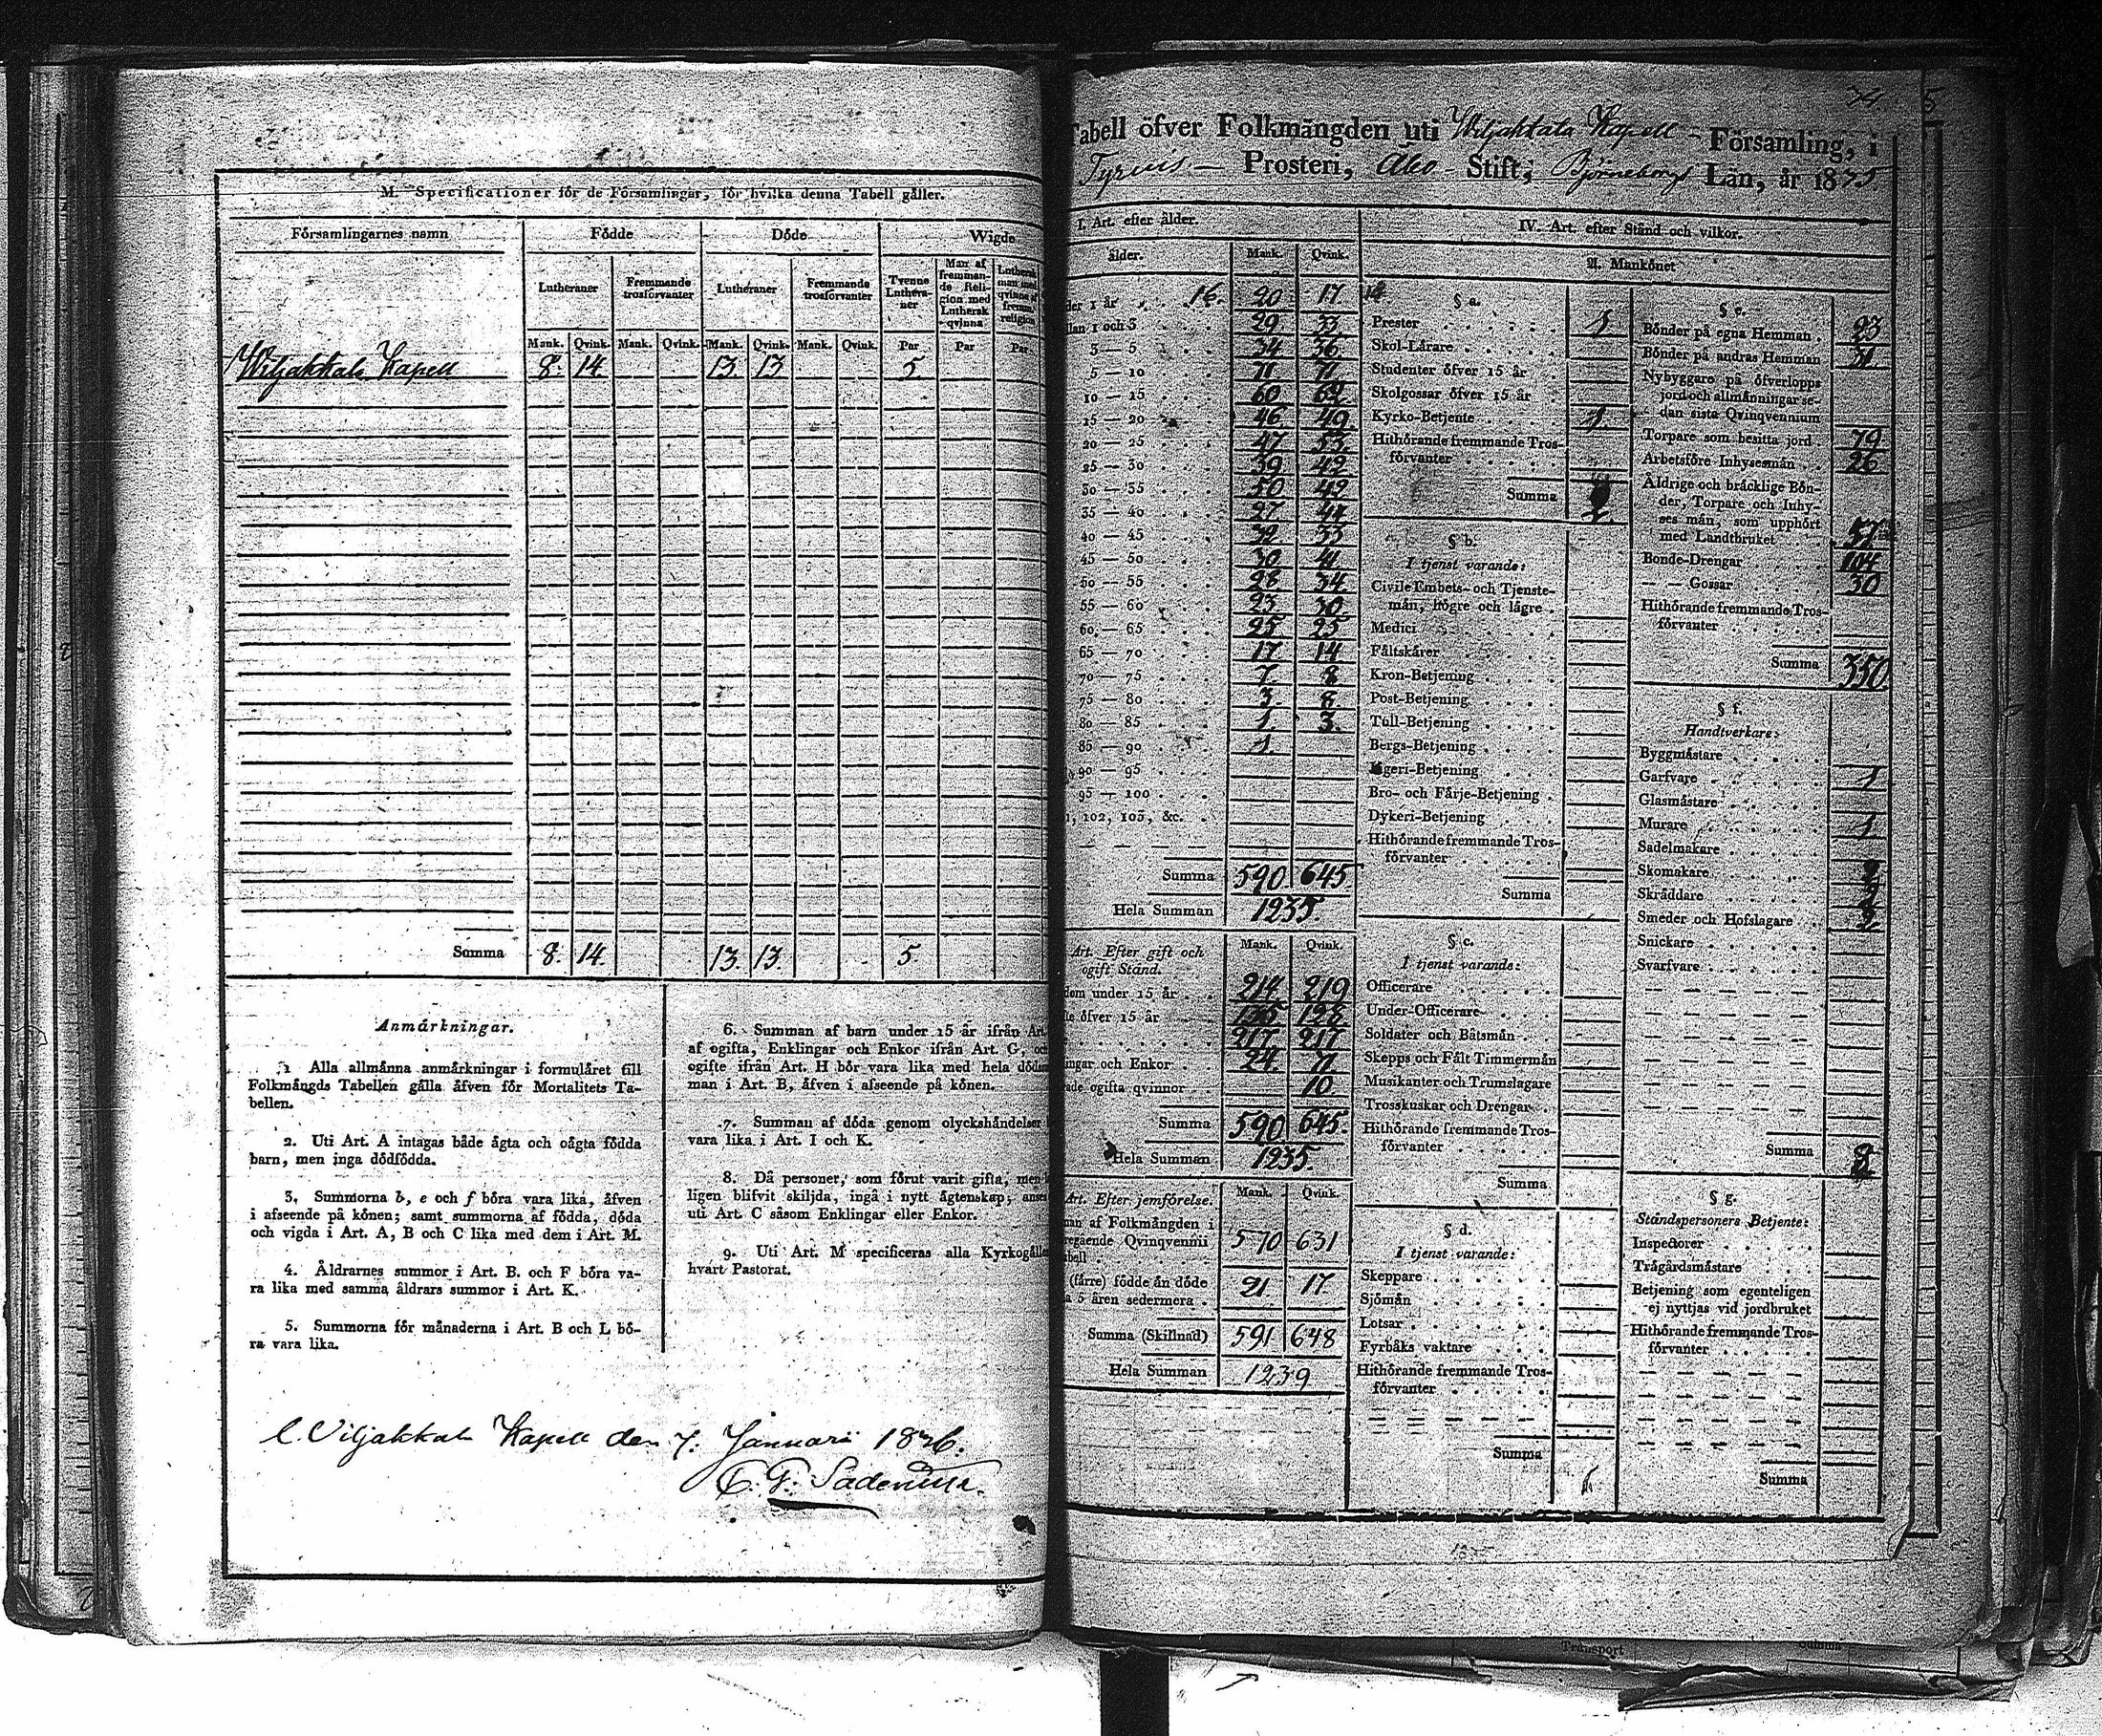 M. Specificationer för de Församlingar, för hvilka denna Tabell gäller.
Församlingarnes namn
Födde
Döde
Wigde
Lutheraner
Fremmande trosförvanter
Lutheraner
Fremmande trosförvanter
Tvenne Lutheraner
Man af fremmande Religion med Luthersk qvinna
Luthersk man med qvinna af fremm. religion
Mank. Qvink. Mank. Qvink. Mank. Qvink. Mank. Qvink. Par Par Par
Wiljakkala Kapell 8. 14. 13. 13. 5.
Summa 8. 14. 13. 13. 5
Anmärkningar.
1 Alla allmänna anmärkningar i formuläret till
Folkmängds Tabellen gälla äfven för Mortalitets Ta-
bellen.
2. Uti Art. A intagas både ägta och oägta födda
barn, men inga dödfödda.
3. Summorna b, e och f böra vara lika, äfven
i afseende på könen; samt summorna af födda, döda
och vigda i Art. A, B och C lika med dem i Art. M.
4. Åldrarnes summor i Art. B. och F böra va-
ra lika med samma åldrars summor i Art. K.
5. Summorna för månaderna i Art. B och L bö-
ra vara lika.
6. Summan af barn under 15 år ifrån Art.
af ogifta, Enklingar och Enkor ifrån Art. G, och
ogifte ifrån Art. H bör vara lika med hela dödssum
man i Art. B, äfven i afseende på könen.
7. Summan af döda genom olyckshändelser
vara lika i Art. I och K.
8. Då personer, som förut varit gifta, men
ligen blifvit skiljda, ingå i nytt ägtenskap; anses
uti Art. C såsom Enklingar eller Enkor.
9. Uti Art. M specificeras alla Kyrkogäll
hvart Pastorat.
Wiljakkala Kapell den 7. Januari 1836.
Tabell öfver Folkmängden uti Wiljakkala Kapell - Församling, i
Tyrvis - Prosteri, Åbo - Stift, Björneborgs Län, år 1835
I. Art. efter ålder.
ålder. Mank. Qvink.
der 1 år 16. 20 17
llan 1 och 3 29 33
3 — 5 34 36
5 — 10 71 71
10 — 15 60 62
15 — 20 46 49
20 — 25 47 53
25 — 30 39 42
30 — 35 50 42
35 — 40 27 44
40 — 45 32 33
45 — 50 30 41
50 — 55 28 34
55 — 60 23 30
60 — 65 25 25
65 — 70 17 14
70 — 75 7. 8
75 — 80 3. 8
80 — 85 1 3.
85 — 90 1.
90 — 95
95 — 100
102, 103, &c.
Summa 590. 645.
Hela Summan 1235.
Art. Efter gift och ogift Stånd. Mank. Qvink.
dom under 15 år 214 219
öfver 15 år 135 128
217 217
ingar och Enkor 24. 71
ade ogifta qvinnor 10.
Summa 590 645.
Hela Summan 1235.
Art. Efter jemförelse. Mank. Qvink.
man af Folkmängden i
regående Qvinqvennii
bell 570 631
(färre) födde än döde
a 5 åren sedermera 21 17
Summa (Skillnad) 591 648
Hela Summan 1239
IV. Art. efter Stånd och vilkor.
A. Mankönet
§ a.
Prester 1
Skol-Lärare
Studenter öfver 15 år
Skolgossar öfver 15 år
Kyrko-Betjente 1.
Hithörande fremmande Tros-
förvanter
Summa 2.
§ b.
I tjenst varande:
Civile Embets- och Tjenste-
män, högre och lägre
Medici
Fältskärer
Kron-Betjening
Post-Betjening
Tull-Betjening
Bergs-Betjening
Ägeri-Betjening
Bro- och Färje-Betjening
Dykeri-Betjening
Hithörande fremmande Tros-
förvanter
Summa
§ c.
I tjenst varande:
Officerare
Under-Officerare
Soldater och Båtsmän
Skepps och Fält Timmermän
Musikanter och Trumslagare
Trosskuskar och Drengar
Hithörande fremmande Tros-
förvanter
Summa
§ d.
I tjenst varande:
Skeppare
Sjömän
Lotsar
Fyrbåks vaktare
Hithörande fremmande Tros-
förvanter
Summa
§ e.
Bönder på egna Hemman 23
Bönder på andras Hemman 31
Nybyggare på öfverlopps
jord och allmänningar se-
dan sista Qvinqvennium
Torpare som besitta jord 79
Arbetsföre Inhysesmän 26
Åldrige och bräcklige Bön-
der, Torpare och Inhy-
ses män, som upphört
med Landtbruket 57
Bonde-Drengar 104
— — Gossar 30
Hithörande fremmande Tros-
förvanter
Summa 350.
§ f.
Handtverkare:
Byggmästare
Garfvare 1
Glasmästare
Murare 1
Sadelmakare
Skomakare 2
Skräddare
Smeder och Hofslagare 2
Snickare
Svarfvare
Summa 8
§ g.
Ståndspersoners Betjente:
Inspectorer
Trägårdsmästare
Betjening som egenteligen
ej nyttjas vid jordbruket
Hithörande fremmande Tros-
förvanter
Summa
Transport